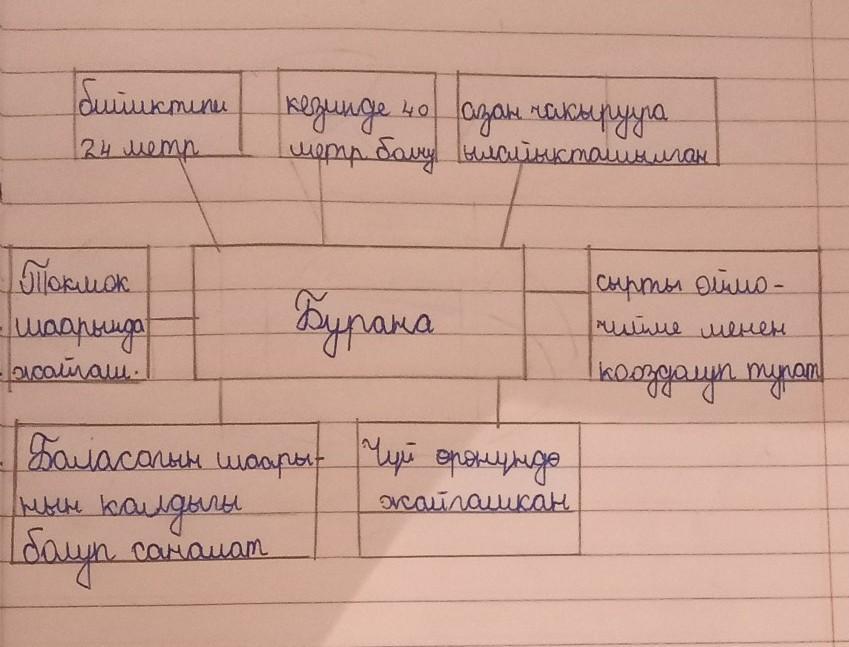 бийиктиги
24 метр
кезинде 40
метр болчу
азан чакырууга
ылайыкташылган
Токмок
шаарында
жайгаш.
Бурана
сырты оймо-
чийме менен
кооздалуп турат
Баласагын шаары-
нын калдыгы
болуп саналат
Чүй өрөнүндө
жайгашкан